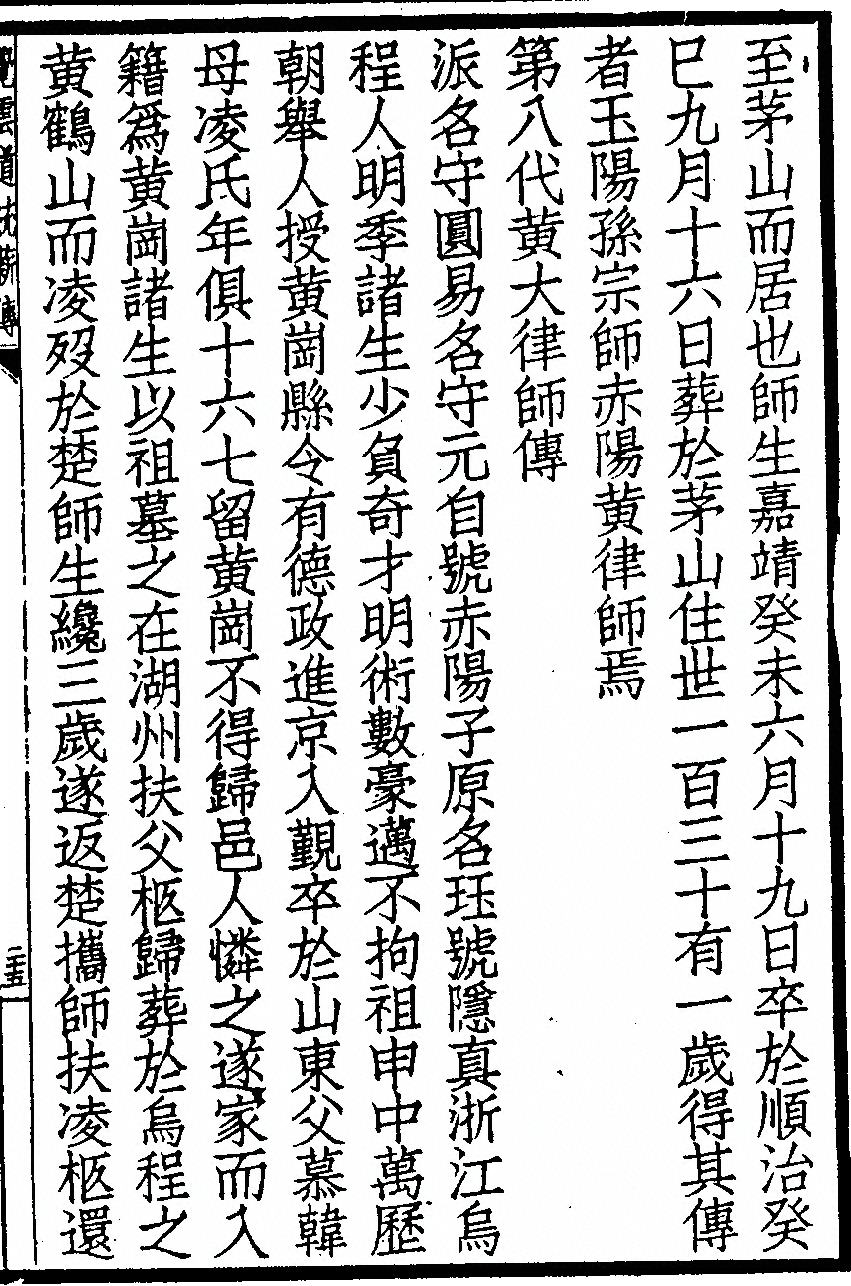 至茅山而居也師生嘉靖癸未六月十九日卒於順治癸
巳九月十六日葬於茅山住世一百三十有一歲得其傳
者玉陽孫宗師赤陽黄律師焉
第八代黄大律師傳
派名守圓易名守元自號赤陽子原名珏號隱真浙江烏
程人明季諸生少負奇才明術數豪邁不拘祖申中萬歷
朝舉人授黄崗縣令有德政進京入覲卒於山東父慕韓
母凌氏年俱十六七留黄崗不得歸邑人憐之遂家而入
籍爲黄崗諸生以祖墓之在湖州扶父柩歸葬於烏程之
黄鶴山而凌歿於楚師生纔三歲遂返楚攜師扶凌柩還
二十五